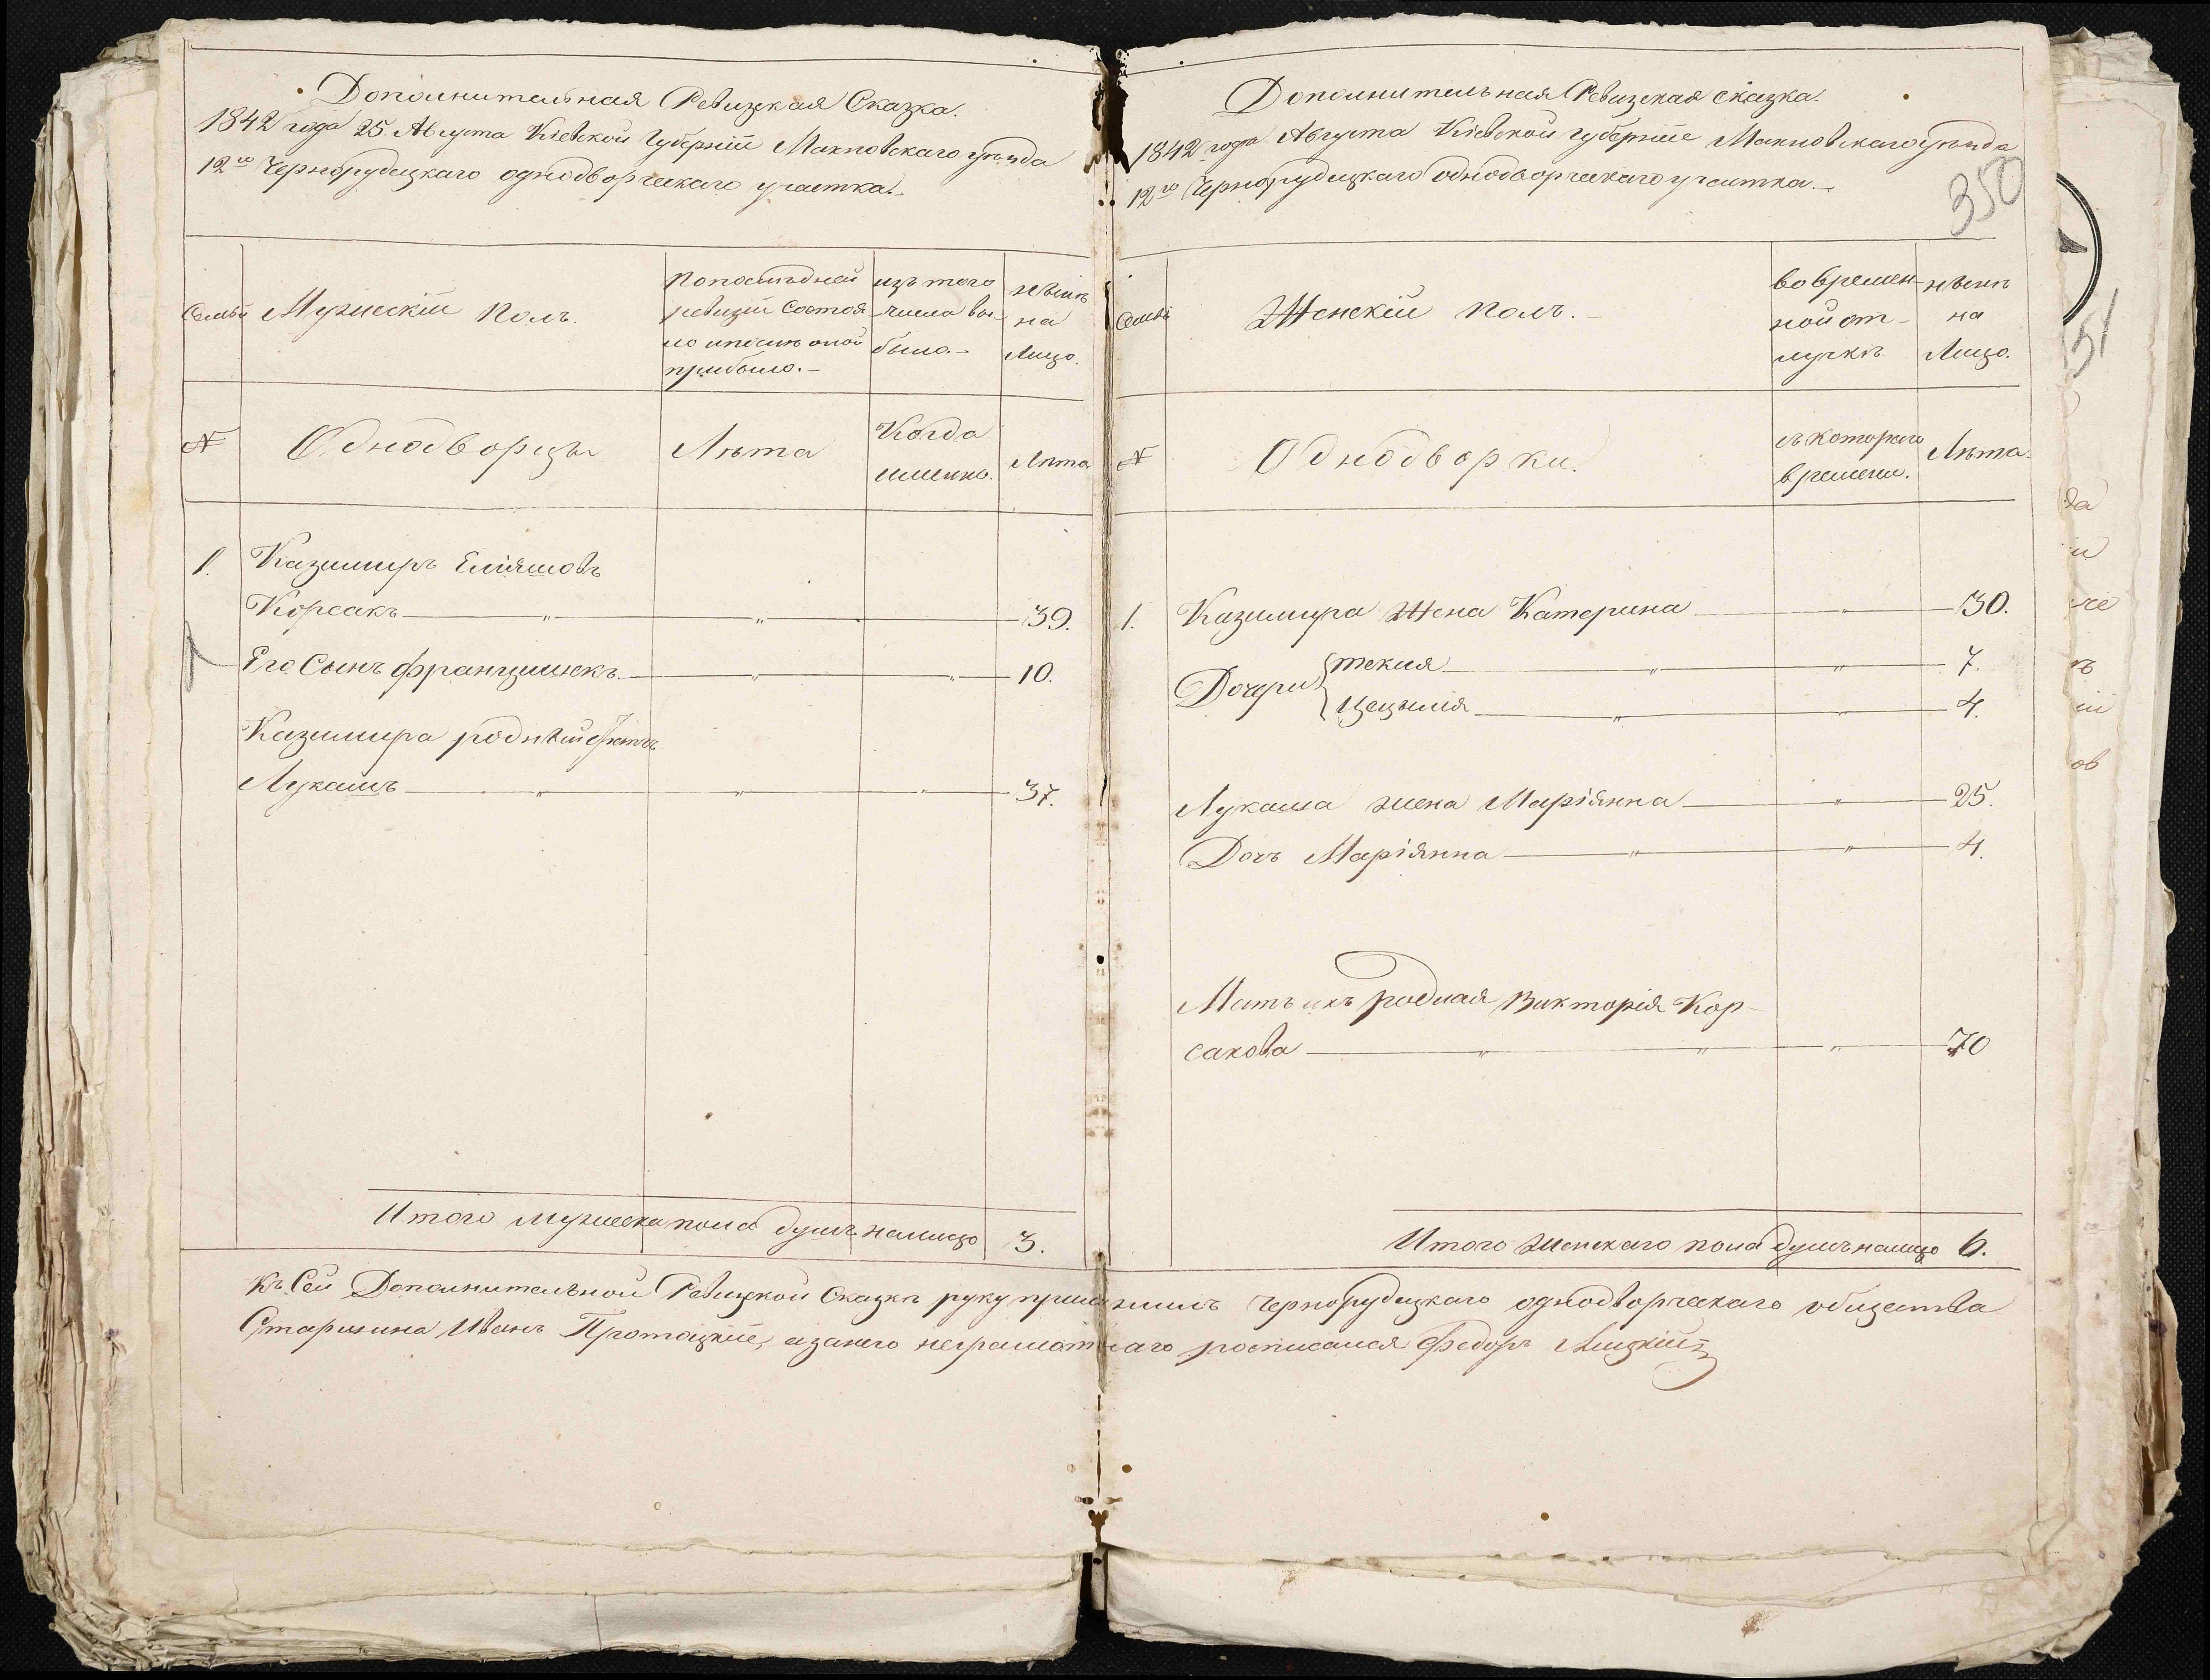 Дополнительная Ревизская Сказка.
1842 года 25 Августа Кіевской Губерніи Махновскаго уѣзда
12го Чернорудецкаго однодворческаго участка.
Семьи
Мужескій полъ.
по послѣдней
ревизіи состоя
ло и послѣ оной
прибыло.
изъ того
числа вы-
было.
нѣинѣ
на
Лицо.
№
Однодворцы
Лѣта
Когда
именно.
Лѣта
1. Казимиръ Еліяшовъ
Корсакъ 39.
Его Сынъ Францишекъ 10.
Казимира родный братъ
Лукашъ 37.
Итого мужеска пола душъ налицо 3.
Дополнительная Ревизская сказка.
1842 года Августа Кіевской губерніи Махновскаго уѣзда
12го Чернорудецкаго Однодворческаго участка.
350
Семьи
Женскій полъ.
во времен-
ной от-
лучкѣ.
нѣинѣ
на
Лицо.
№
Однодворки.
съ котораго
времени.
Лѣта.
1. Казимира Жена Катерина 30.
Дочери
текля 7.
Цецылія 4.
Лукаша жена Маріянна 25.
Дочъ Маріянна 4.
Мать ихъ родная Викторія Кор-
сакова 70
Итого женскаго пола душъ налицо 6.
Къ Сей Дополнительной Ревизской Сказкѣ руку приложилъ Чернорудецкаго однодворческаго общества
Старшина Иванъ а занего неграмотнаго росписался Федоръ
51
да
и
че
ъ
ій
ов